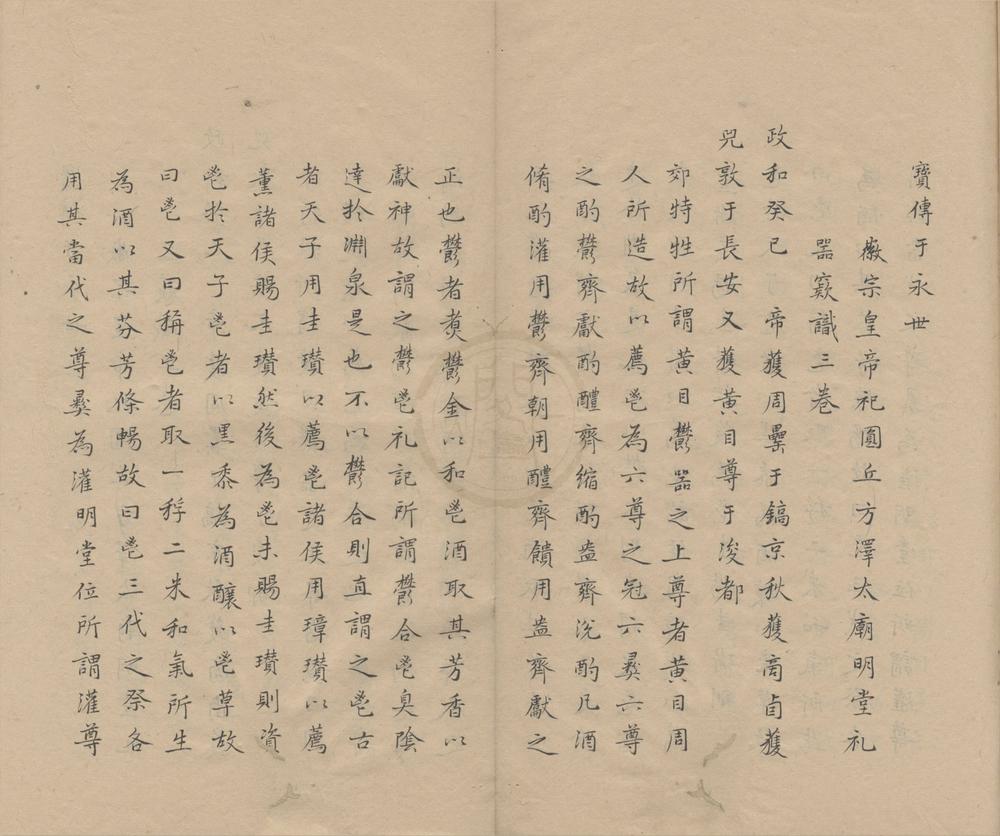 寶傳于永世
徽宗皇帝祀圓丘方澤太廟明堂礼
器款識三卷
政和癸巳　帝獲周罍于鎬京秋獲商卣獲
兕敦于長安又獲黃目尊于浚都
郊特牲所謂黃目鬱器之上尊者黃目周
人所造故以薦鬯為六尊之冠六彞六尊
之酌鬱齊獻酌醴齊縮酌盎齊涗酌凡酒
脩酌灌用鬱齊朝用醴齊饋用盎齊獻之
正也鬱者煑鬱金以和鬯酒取其芳香以
獻神故謂之鬱鬯礼記所謂鬱合鬯臭陰
達於淵泉是也不以鬱合則直謂之鬯古
者天子用圭瓚以薦鬯諸侯用璋瓚以薦
薰諸侯賜圭瓚然後為鬯未賜圭瓚則資
鬯於天子鬯者以黑黍為酒釀以鬯草故
曰鬯又曰稱鬯者取一稃二米和氣所生
為酒以其芬芳條暢故曰鬯三代之祭各
用其當代之尊彞為灌明堂位所謂灌尊